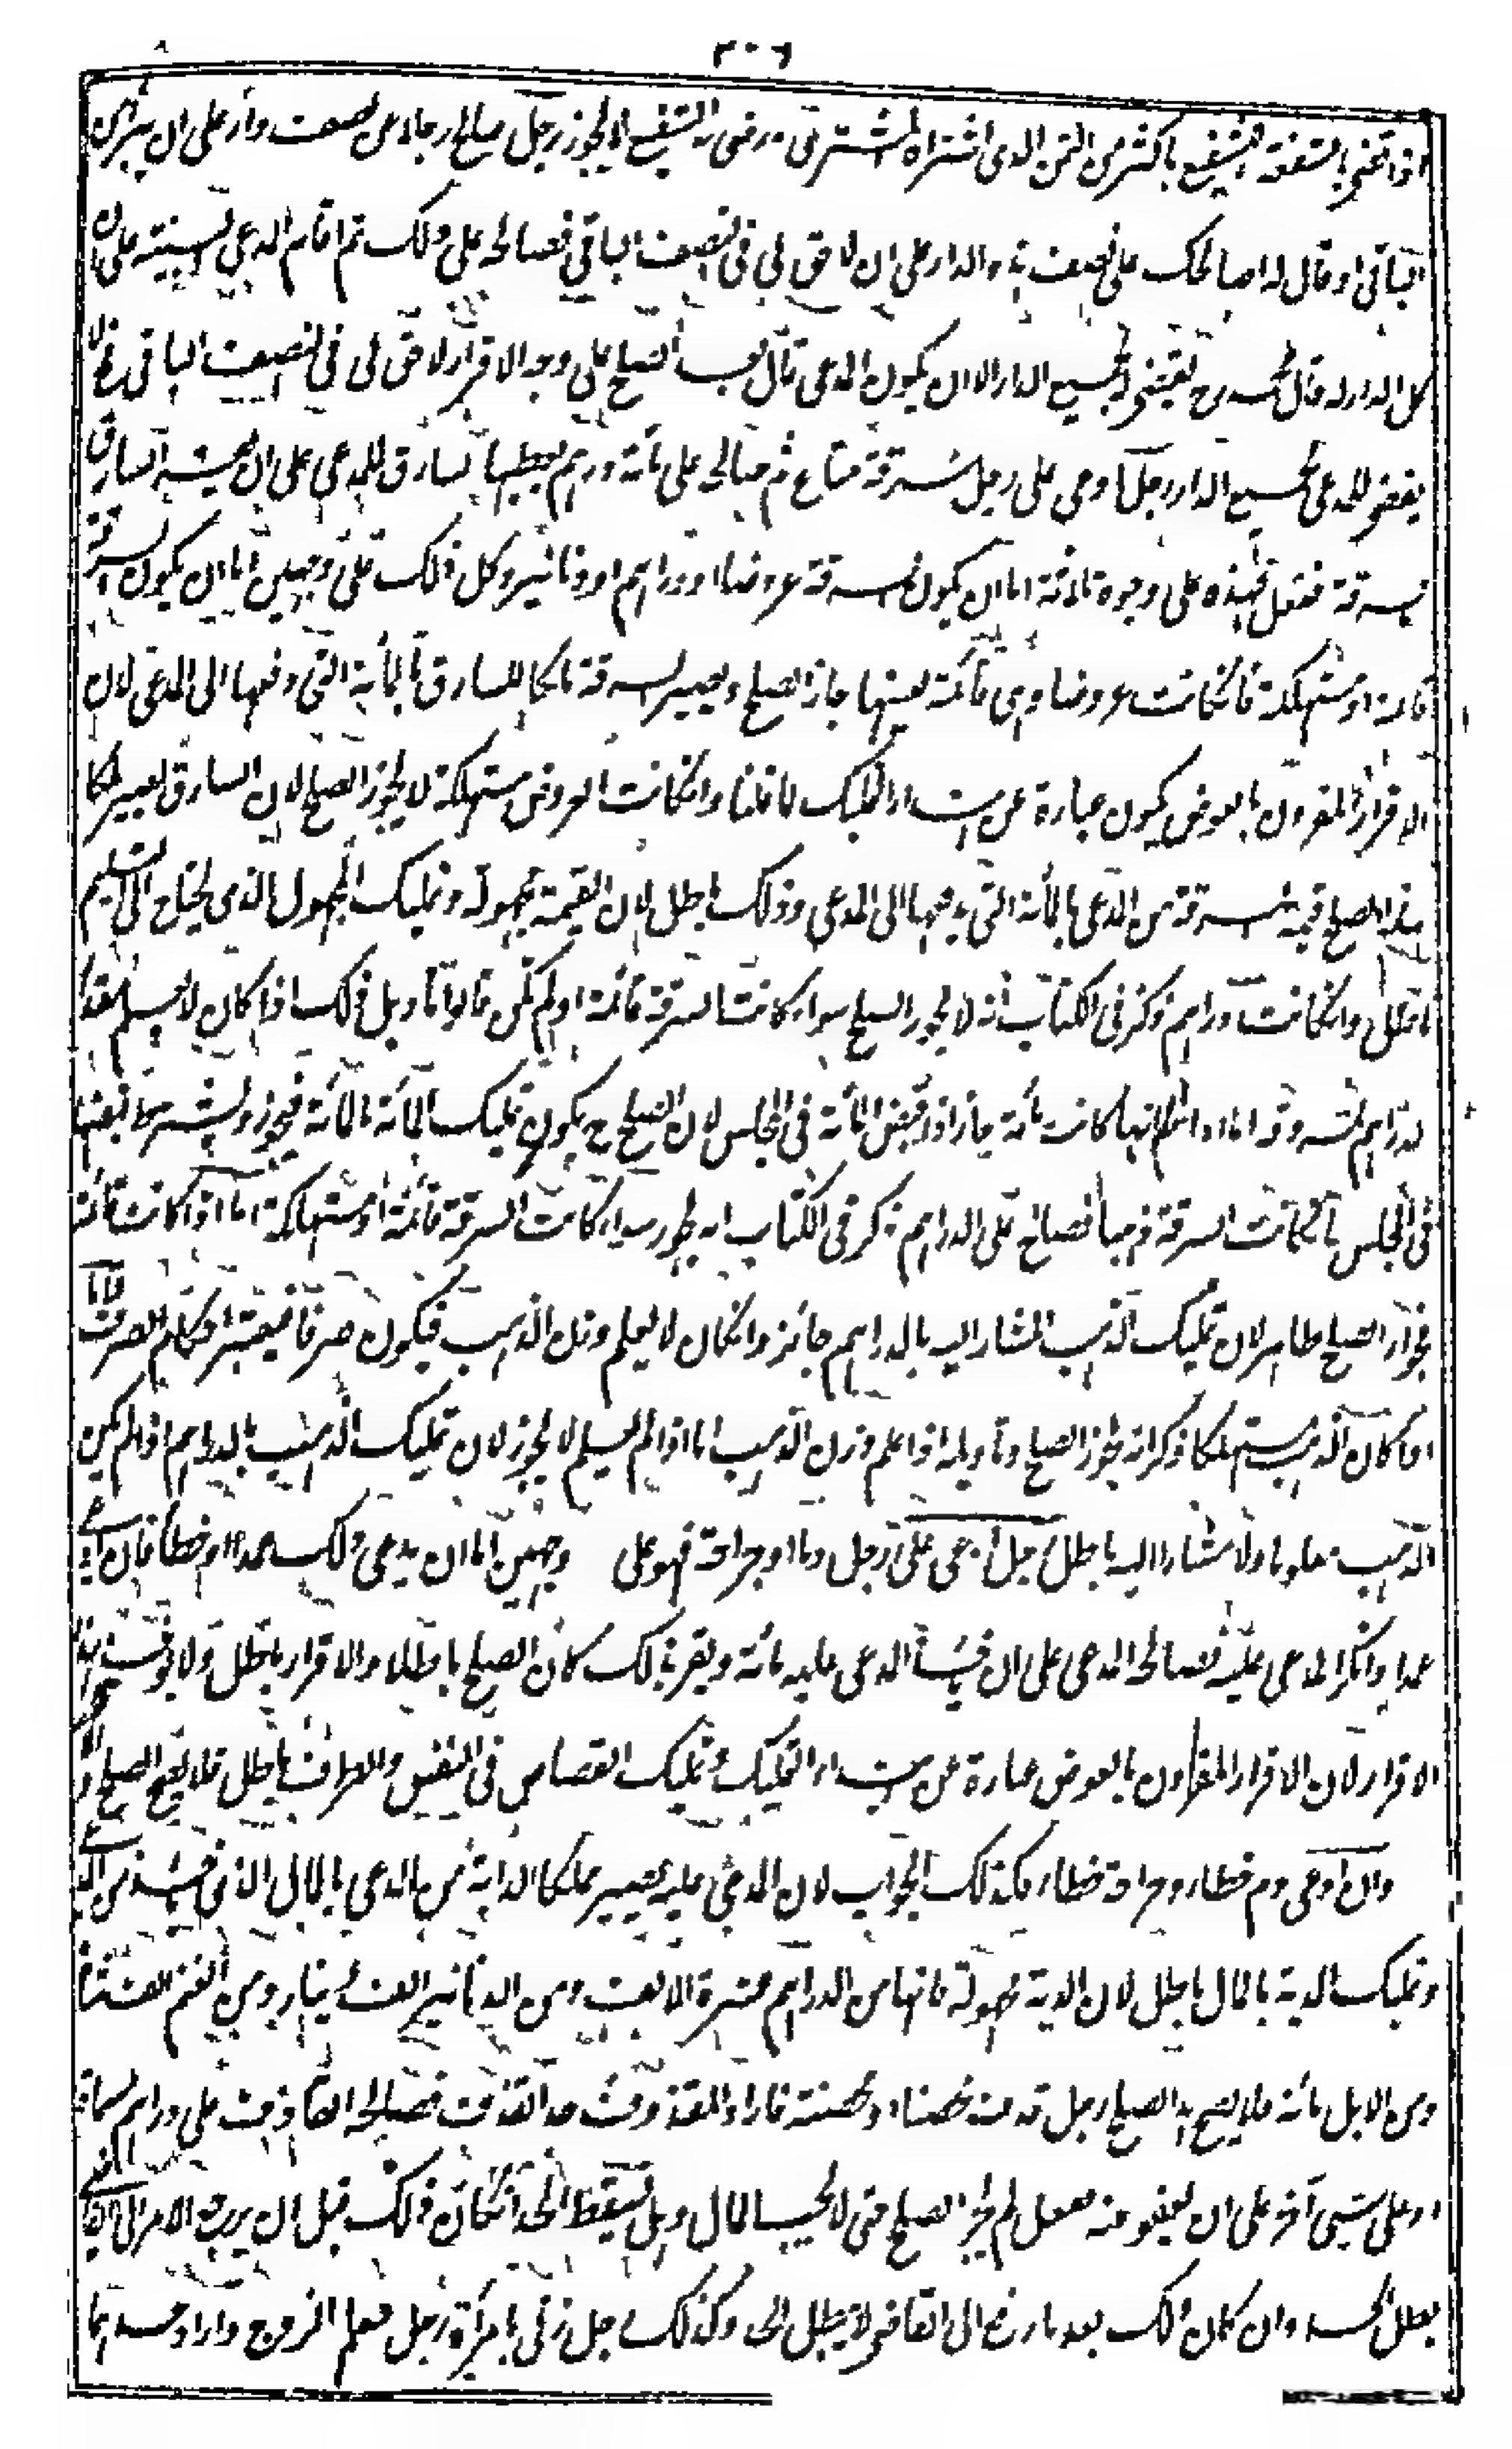 ٣٠٦
اذا قضى بالشفعة للشفيع باكثر من الثمن الذى اشتراه المشترى ورضى به الشفيع لا يجوز رجل صالح رجلا من نصف دار على ان يبرئ من
الباقى او قال له اصالحك على نصف هذه الدار على ان لا حق لى فى النصف الباقى فصالحه على ذلك ثم اقام المدعى البينة على ان
كل الدار له قال محمد رح يقضى له بجميع الدار الا ان يكون المدعى قال بعد الصلح على وجه الاقرار لا حق لى فى النصف الباقى فح لا
يقضى للمدعى بجميع الدار رجل ادعى على رجل سرقة متاع ثم صالحه على مائة درهم يعطيها السارق للمدعى على ان السارق
بسرقة ففعل فهذه على وجوه ثلاثة اما ان يكون السرقة عروضا او دراهم او دنانير وكل ذلك على وجهين اما ان يكون السرقة
قائمة او مستهلكة فان كانت عروضا وهى قائمة بعينها جاز الصلح ويصير السرقة ملكا للسارق بالمائة التى دفعها الى المدعى لان
الاقرار المقرون بالعوض يكون عبارة عن ابتداء التمليك لما قلنا وان كانت العروض مستهلكة لا يجوز الصلح لان السارق يصير ملكا
بهذا الصلح قيمة السرقة من المدعى بالمائة التى يدفعها الى المدعى وذلك باطل لان القيمة مجهولة وتمليك المجهول الذى يحتاج الى التسليم
باطل وان كانت دراهم ذكر فى الكتاب انه لا يجوز الصلح سواء كانت السرقة قائمة او لم تكن قالوا تاويل ذلك اذا كان لا يعلم مقدار
الدراهم المسروقة اما اذا علم انها كانت مائة جاز اذا قبض المائة فى المجلس لان الصلح ح يكون تمليك المائة بالمائة فيجوز ويشترط قبضها
فى المجلس فان كانت السرقة ذهبا فصالح على الدراهم ذكر فى الكتاب انه يجوز سواء كانت السرقة قائمة او مستهلكة اما اذا كانت قائمة
فجواز الصلح ظاهر لان تمليك الذهب المشار اليه بالدراهم جائز وان كان لا يعلم وزن الذهب فيكون صرفا فيعتبر احكام الصرف اما
اذا كان الذهب مستهلكا ذكر انه يجوز الصلح وتاويله اذا علم وزن الذهب اما اذا لم يعلم لا يجوز لان تمليك الذهب بالدراهم اذا لم يكن
الذهب معلوما ولا مشارا اليه باطل رجل ادعى على رجل دما او جراحة فهو على وجهين اما ان يدعى ذلك عمدا او خطأ فان ادعى
عمدا وانكر المدعى عليه فصالحه المدعى على ان المدعى عليه مائة ويقر بذلك كان الصلح باطلا والاقرار باطل ولا يوخذ بهذا
الاقرار لان الاقرار المقرون بالعوض عبارة عن ابتداء التمليك وتمليك القصاص فى النفس والاطراف باطل فلا يصح الصلح
وان ادعى دم خطأ وجراحة خطأ فكذلك الجواب لان المدعى عليه يصير متملكا الدية من المدعى بالمال الذى
وتمليك الدية بالمال باطل لان الدية مجهولة فانها من الدراهم عشرة الاف ومن الدنانير الف دينار ومن الغنم الف شاة
ومن الابل مائة فلا يصح هذا الصلح رجل قذف محصنا او محصنة فاراد المقذوف حد القذف فصالحه القاذف على دراهم مسماة
او على شىء آخر على ان يعفو عنه ففعل لم يجز الصلح حتى لا يجب المال وهل يسقط الحد ان كان ذلك قبل ان يرفع الامر الى القاضى
بطل الحد وان كان ذلك بعد ما رفع الى القاضى لا يبطل الحد وكذلك رجل زنى بامرأة رجل فعلم الزوج واراد حدهما